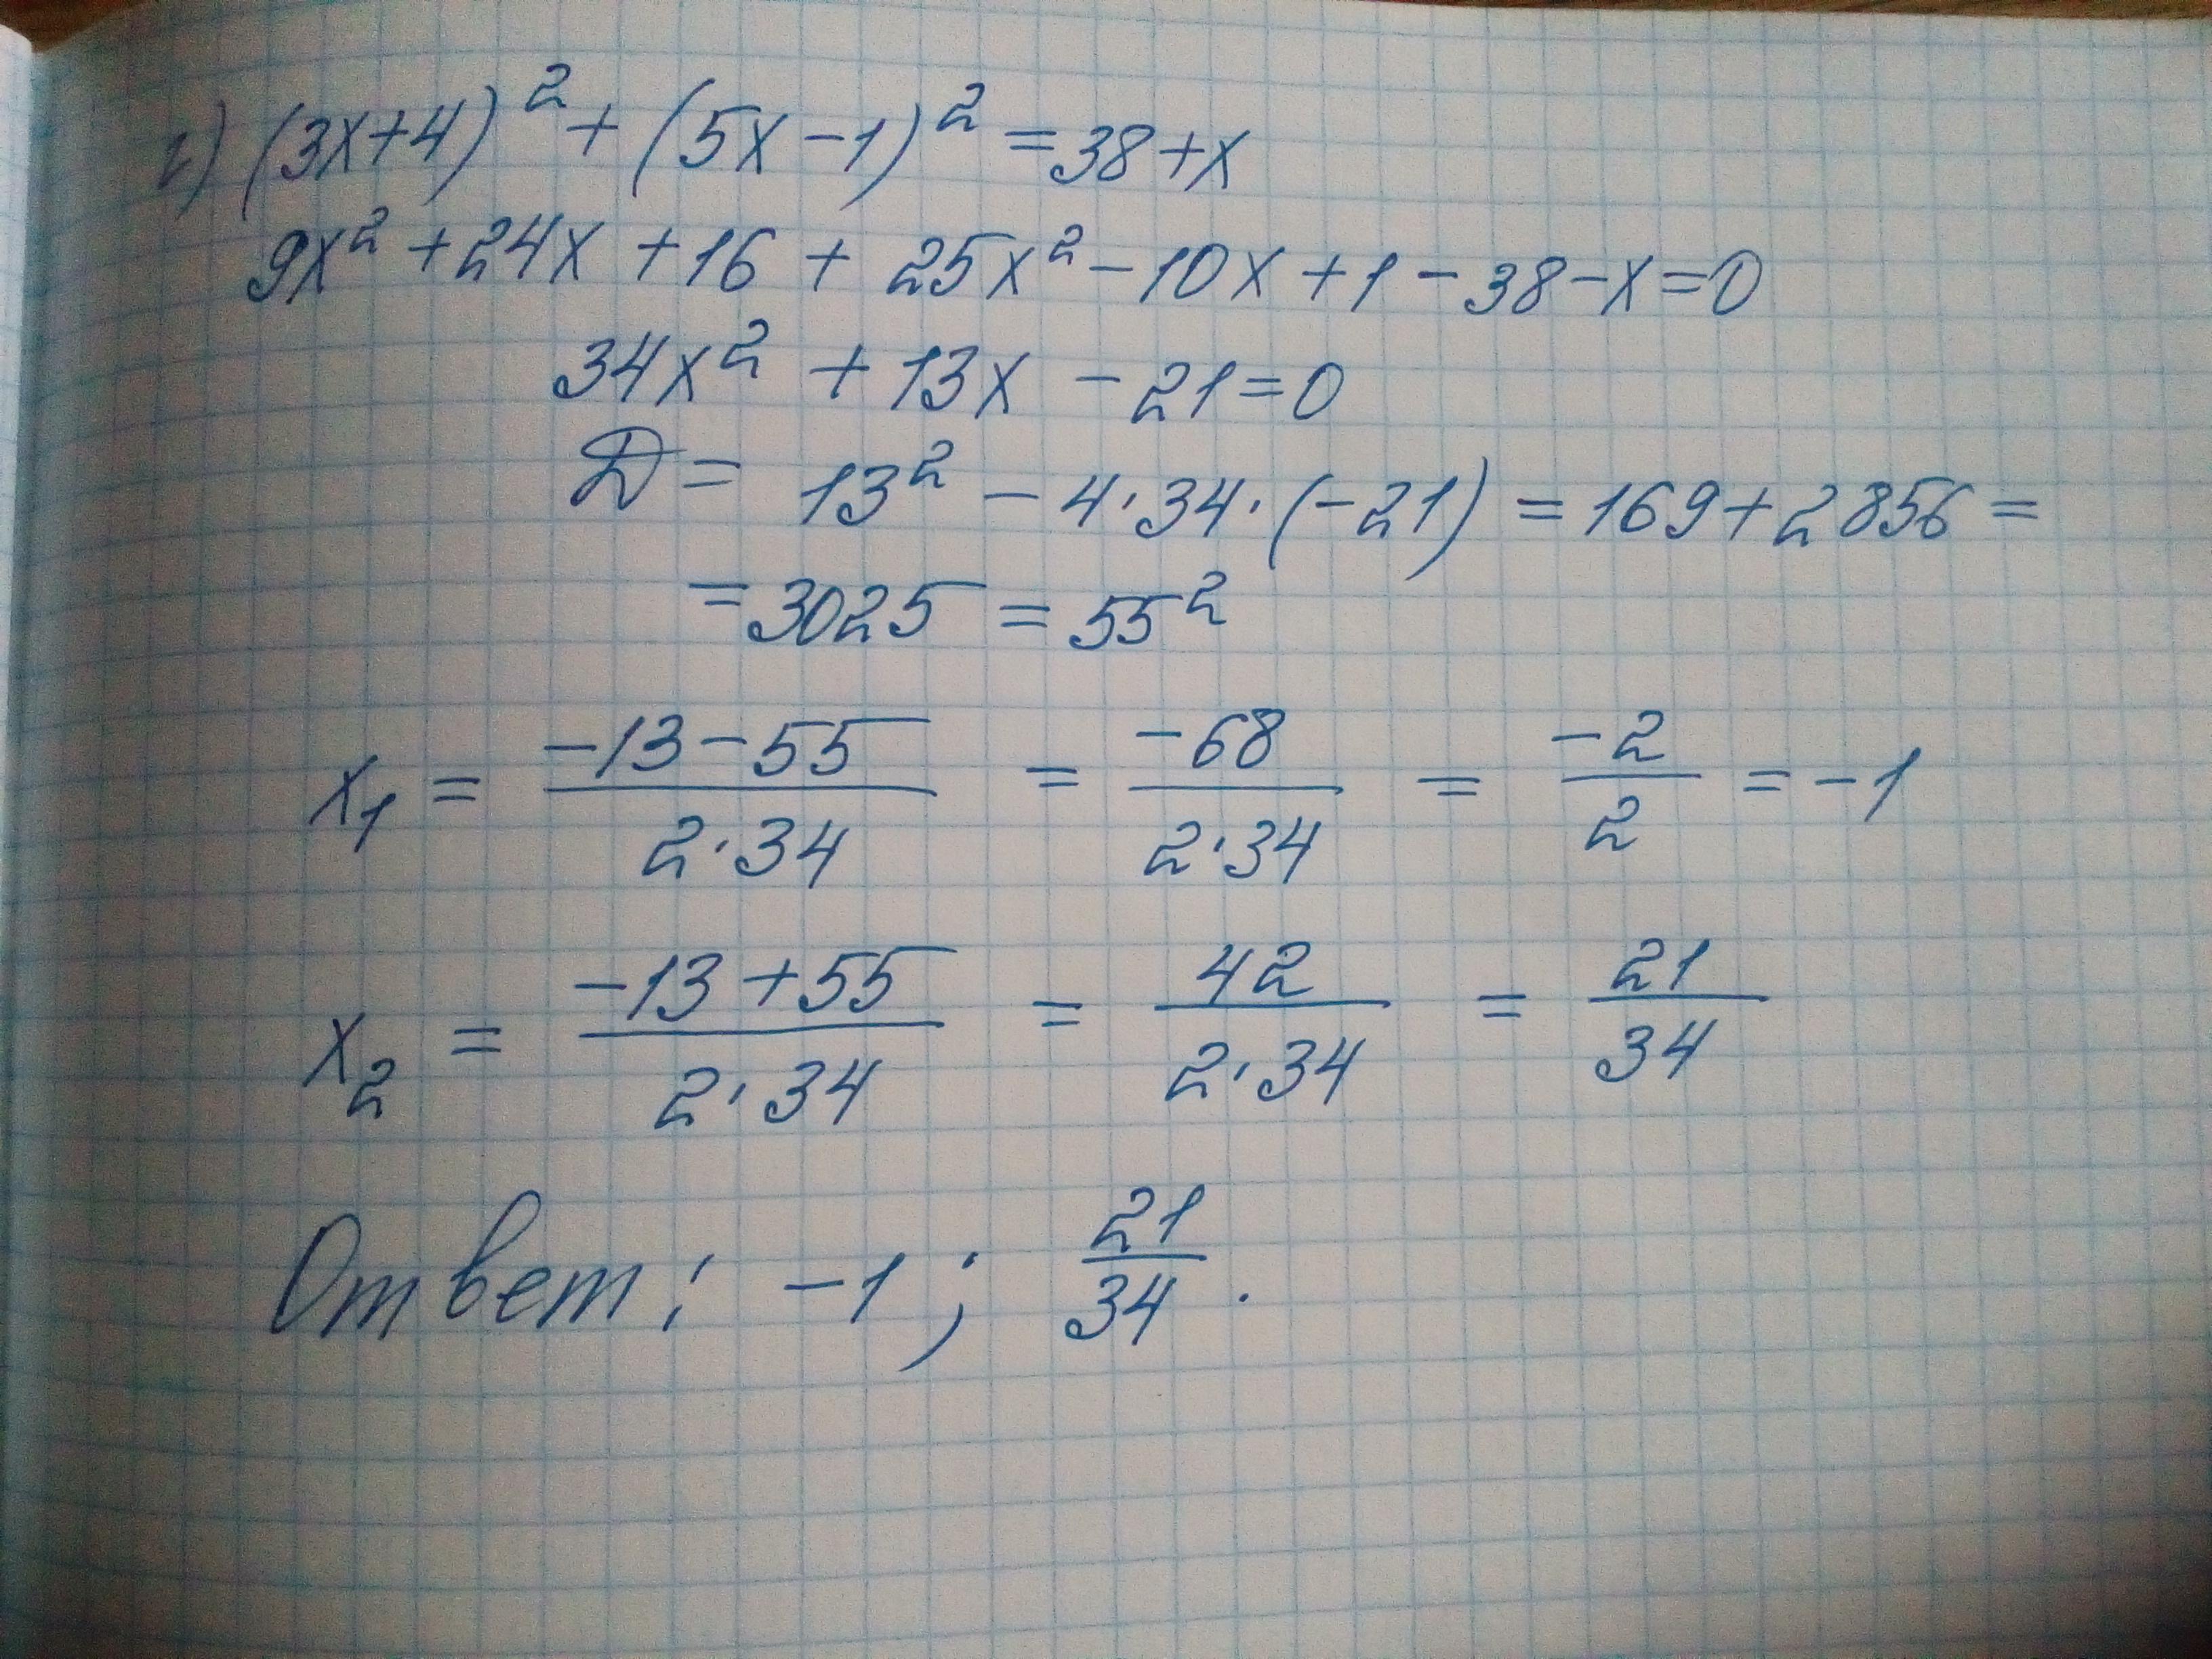 г) (3x+4)² + (5x-1)² = 38+x
9x² + 24x + 16 + 25x² - 10x + 1 - 38 - x = 0
34x² + 13x - 21 = 0
D = 13² - 4·34·(-21) = 169 + 2856 =
= 3025 = 55²
x₁ = (-13-55)/(2·34) = -68/(2·34) = -2/2 = -1
x₂ = (-13+55)/(2·34) = 42/(2·34) = 21/34
Ответ: -1; 21/34.